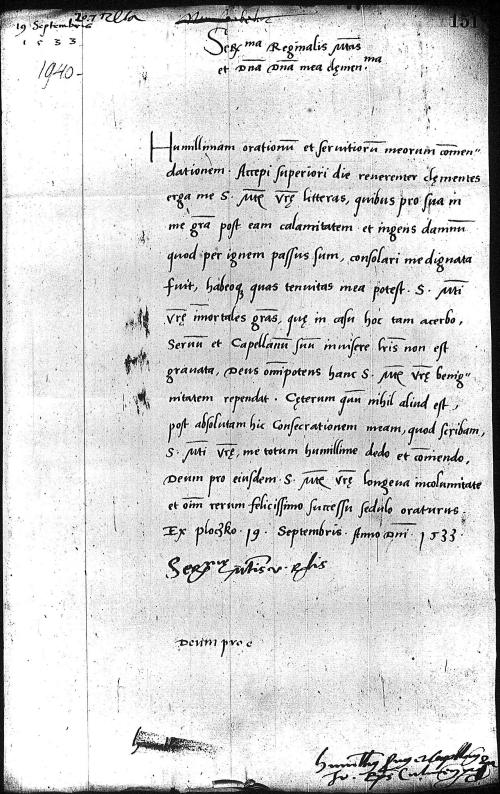 19 Septembris
1533
1940
151
Ser.ma Reginalis Mtas
et Dna Dna mea clemen.ma
Humillimam orationū et servitiorū meorum comen"
dationem. Accepi superiori die reverenter clementes
erga me S. Mtę Vrę litteras, quibus pro sua in
me gra post eam calamitatem et ingens damnū
quod per ignem passus sum, consolari me dignata
fuit, habeoq quas tenuitas mea potest. S. Mti
Vrę imortales gras, quę in casu hoc tam acerbo,
Servū et Capellanū suū invisere lris non est
gravata, Deus omipotens hanc S. Mtę Vrę benig"
nitatem rependat. Cęterum quū nihil aliud est,
post absolutam hic Consecrationem meam, quod scribam,
S. Mti Vrę, me totum humillime dedo et comendo,
Deum pro eiusdem S. Mtę Vrę longeva incolumitate
et oīm rerum felicissimo successu sedulo oraturus.
Ex ploczko. 19. Septembris. Anno Dni. 1533
Mtis v. Rlis
Deum pro e